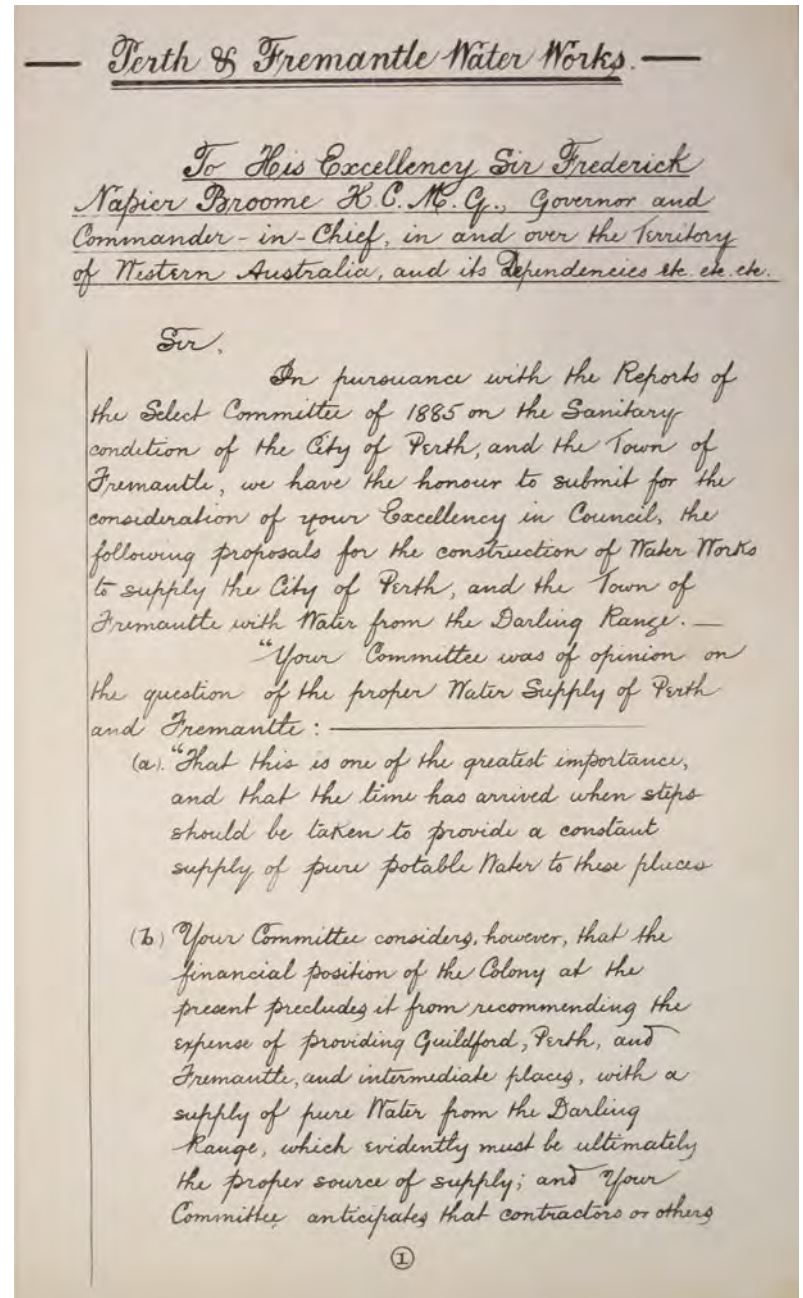 — Perth & Fremantle Water Works. —
To His Excellency Sir Frederick
Napier Broome K.C.M.G., Governor and
Commander-in-Chief, in and over the Territory
of Western Australia, and its Dependencies etc. etc. etc.
Sir,
In pursuance with the Reports of
the Select Committee of 1885 on the Sanitary
condition of the City of Perth, and the Town of
Fremantle, we have the honour to submit for the
consideration of your Excellency in Council, the
following proposals for the construction of Water Works
to supply the City of Perth, and the Town of
Fremantle with Water from the Darling Range. —
"Your Committee was of opinion on
the question of the proper Water Supply of Perth
and Fremantle : —
(a). "That this is one of the greatest importance,
and that the time has arrived when steps
should be taken to provide a constant
supply of pure potable Water to these places
(b) Your Committee considers, however, that the
financial position of the Colony at the
present precludes it from recommending the
expense of providing Guildford, Perth, and
Fremantle, and intermediate places, with a
supply of pure Water from the Darling
Range, which evidently must be ultimately
the proper source of supply; and Your
Committee anticipates that contractors or others
1